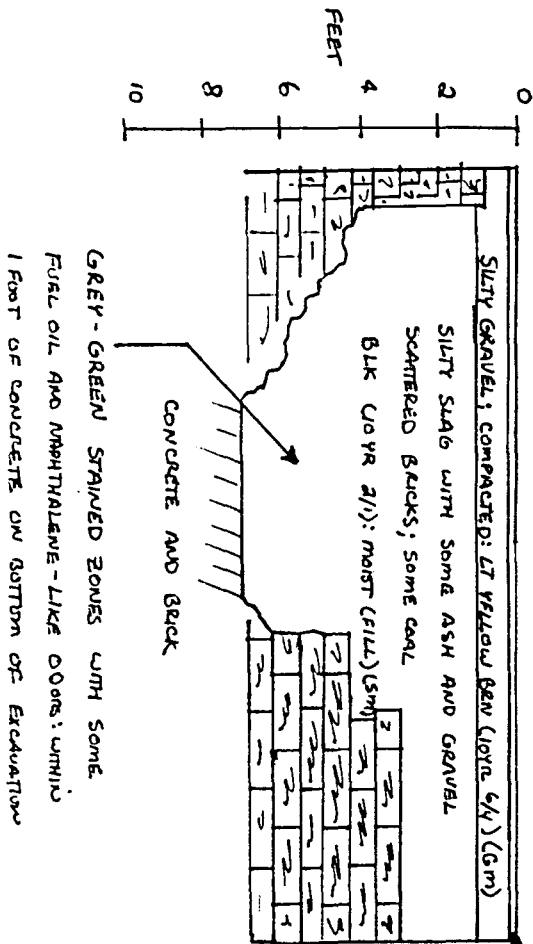 FEET
0
2
4
6
8
10
SILTY GRAVEL; COMPACTED: LT YELLOW BRN (10YR 6/4) (GM)
SILTY SLAG WITH SOME ASH AND GRAVEL
SCATTERED BRICKS; SOME COAL
BLK (10YR 2/1): MOIST (FILL) (SM)
CONCRETE AND BRICK
GREY-GREEN STAINED ZONES WITH SOME
FUEL OIL AND NAPHTHALENE-LIKE ODORS: WITHIN
1 FOOT OF CONCRETE ON BOTTOM OF EXCAVATION